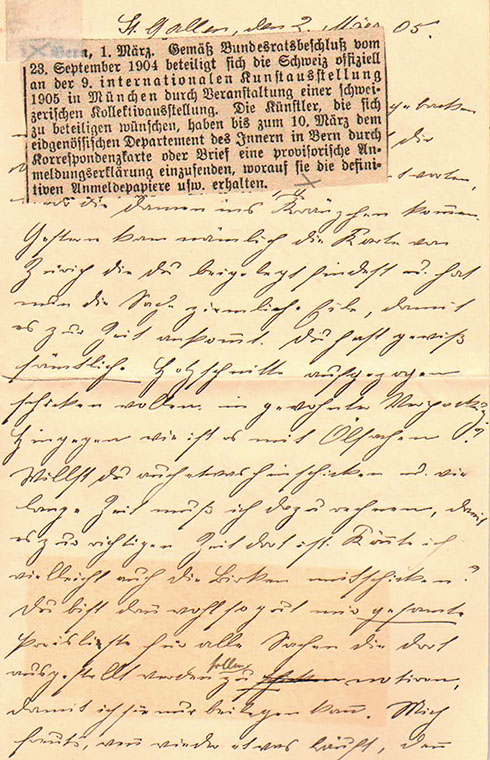 St. Gallen, den 2. März 05.
Bern, 1. März. Gemäß Bundesratsbeschluß vom
23. September 1904 beteiligt sich die Schweiz offiziell
an der 9. internationalen Kunstausstellung
1905 in München durch Veranstaltung einer schwei-
zerischen Kollektivausstellung. Die Künstler, die sich
zu beteiligen wünschen, haben bis zum 10. März dem
eidgenössischen Departement des Innern in Bern durch
Korrespondenzkarte oder Brief eine provisorische An-
meldungserklärung einzusenden, worauf sie die defini-
tiven Anmeldepapiere usw. erhalten.
die
die Damen ins Kränzchen kommen.
Gestern kam nämlich die Karte von
Zürich die du beigelegt findest u. hat
nun die Sache ziemliche Eile, damit
es zur Zeit ankommt. Du hast gewiß
sämtliche Holzschnitte aufgezogen
schicken wollen in gewohnter Verpackung?
Hingegen wie ist es mit Ölsachen?
Willst du auch etwas hinschicken u. wie
lange Zeit muß ich dazu rechnen, damit
es zur richtigen Zeit dort ist. Könnte ich
vielleicht auch die Birken mitschicken?
Du bist dann wohl so gut mir gesamte
Preisliste für alle Sachen die dort
ausgestellt werden sollen zu notiren,
damit ich sie nur beilegen kann. Mich
freuts, wenn wieder etwas läuft, denn